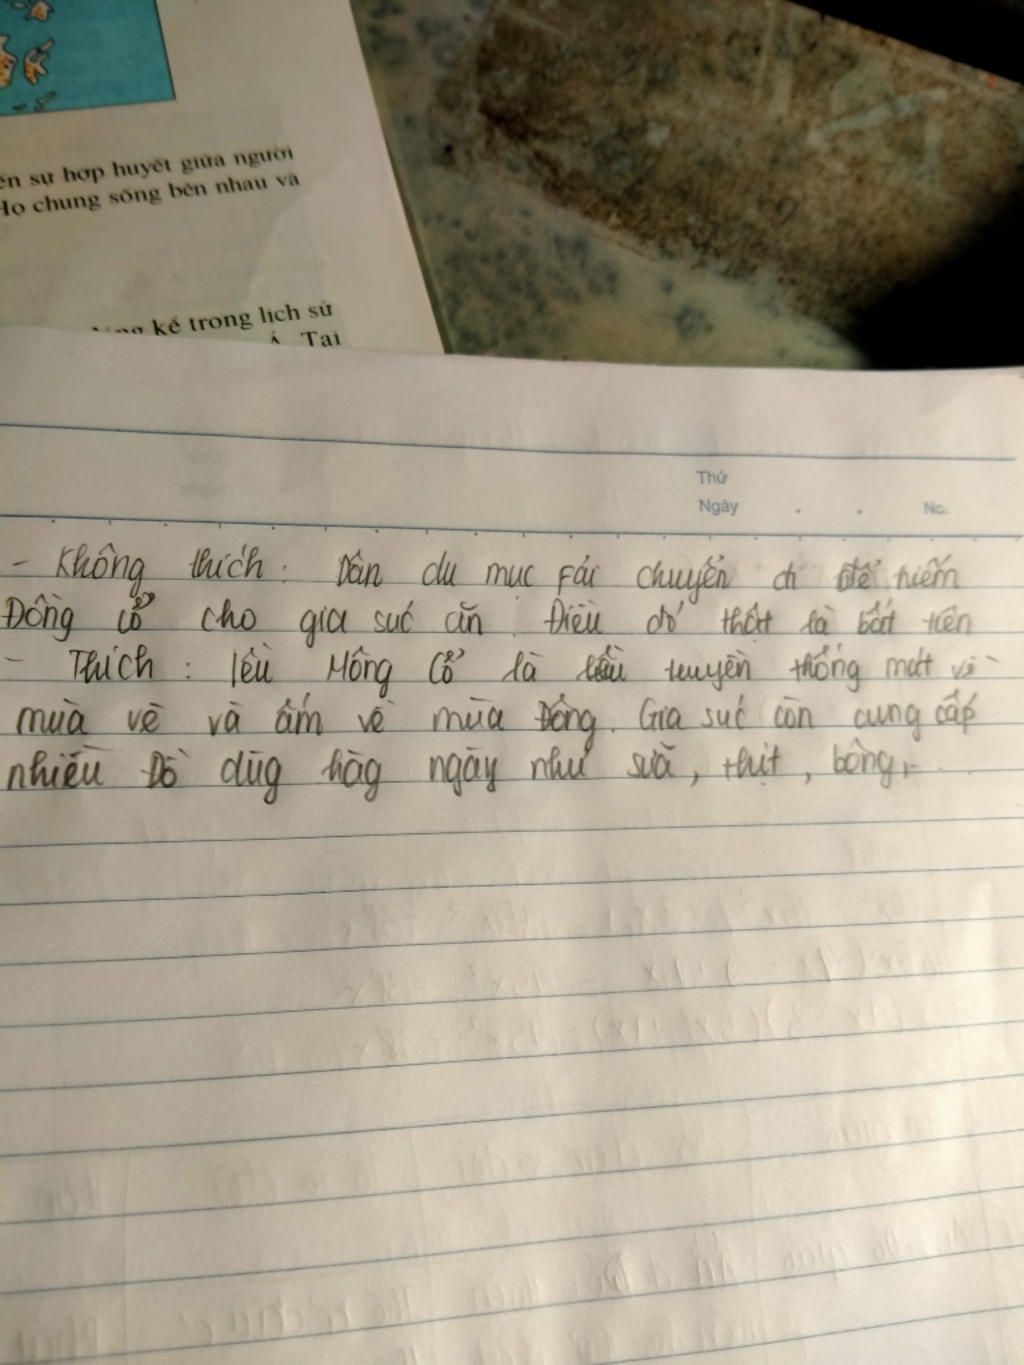 ến sự hợp huyết giữa người
Họ chung sống bên nhau và
kể trong lịch sử
Tại
Thứ
Ngày . . No.
- Không thích : Dân du mục Fải chuyển đi để kiếm
Đồng cỏ cho gia súc ăn. Điều đó thật là bất tiện
- Thích : lều Mông Cổ là lều truyền thống mát về
mùa vè và ấm về mùa Đông. Gia súc còn cung cấp
nhiều Đồ dùg hàg ngày như sữa, thịt, bông,